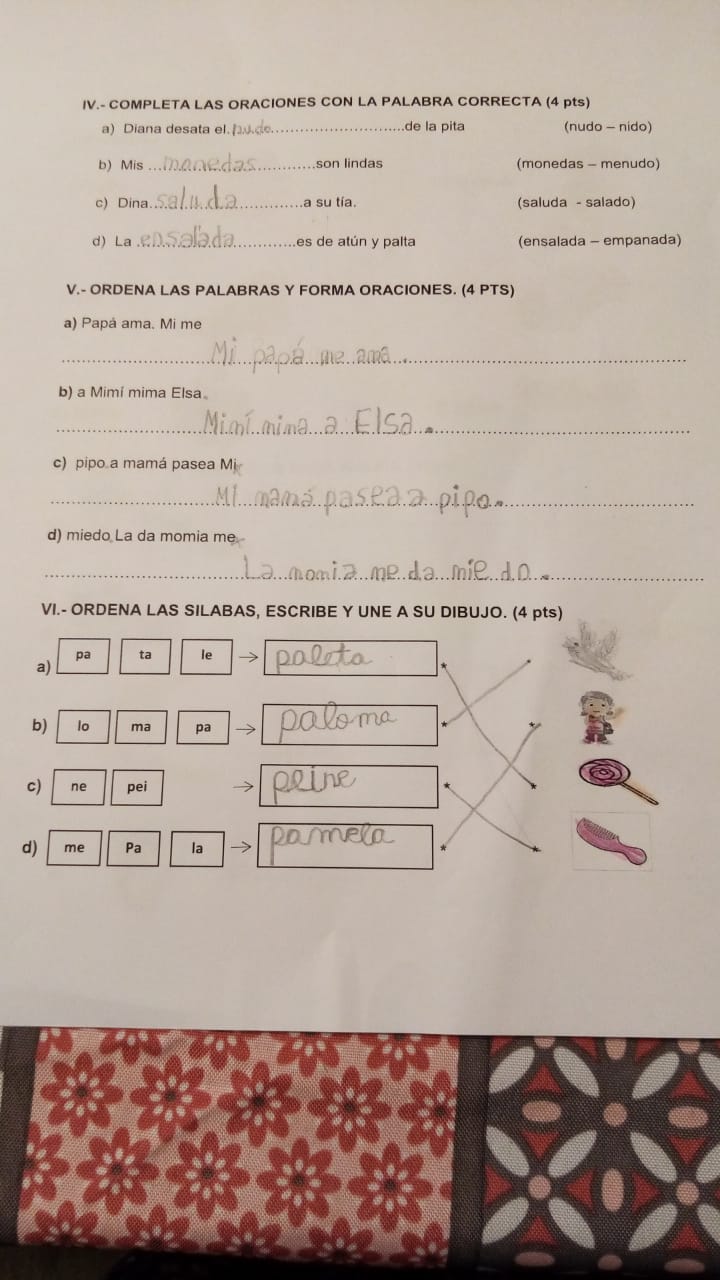 IV.- COMPLETA LAS ORACIONES CON LA PALABRA CORRECTA (4 pts)
a) Diana desata el. nudo..............................de la pita (nudo – nido)
b) Mis ...manedas..............son lindas (monedas – menudo)
c) Dina..saluda................a su tía. (saluda - salado)
d) La .ensalada...............es de atún y palta (ensalada – empanada)
V.- ORDENA LAS PALABRAS Y FORMA ORACIONES. (4 PTS)
a) Papá ama. Mi me
Mi papá me ama.
b) a Mimí mima Elsa.
Mimí mima a Elsa.
c) pipo a mamá pasea Mi
Mi mamá pasea a pipo.
d) miedo La da momia me
La momia me da mie do.
VI.- ORDENA LAS SILABAS, ESCRIBE Y UNE A SU DIBUJO. (4 pts)
a) pa ta le → paleta
b) lo ma pa → paloma
c) ne pei → peine
d) me Pa la → pamela